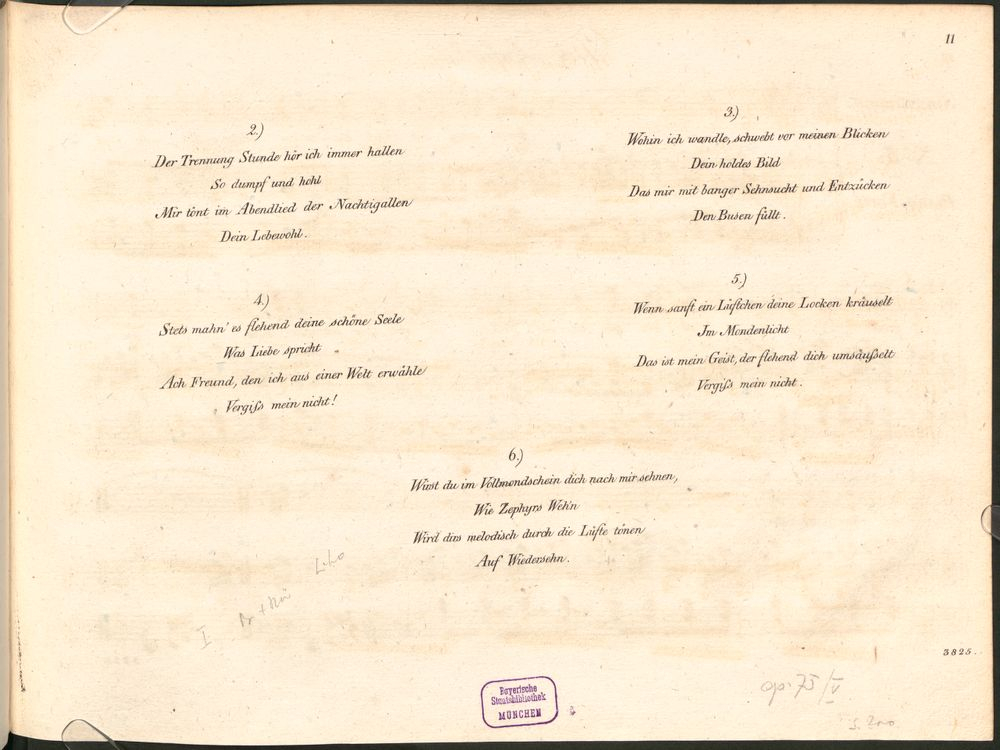 11
2.)
Der Trennung Stunde hör ich immer hallen
So dumpf und hohl
Mir tönt im Abendlied der Nachtigallen
Dein Lebewohl.
3.)
Wohin ich wandle, schwebt vor meinen Blicken
Dein holdes Bild
Das mir mit banger Sehnsucht und Entzücken
Den Busen füllt.
4.)
Stets mahn' es flehend deine schöne Seele
Was Liebe spricht
Ach Freund, den ich aus einer Welt erwähle
Vergiſs mein nicht!
5.)
Wenn sanft ein Lüftchen deine Locken kräuselt
Jm Mondenlicht
Das ist mein Geist, der flehend dich umsäuſselt
Vergiſs mein nicht.
6.)
Wirst du im Vollmondschein dich nach mir sehnen,
Wie Zephyrs Weh'n
Wird dirs melodisch durch die Lüfte tönen
Auf Wiedersehn.
I
3825.
op. 75/V
Bayerische
Staatsbibliothek
MÜNCHEN